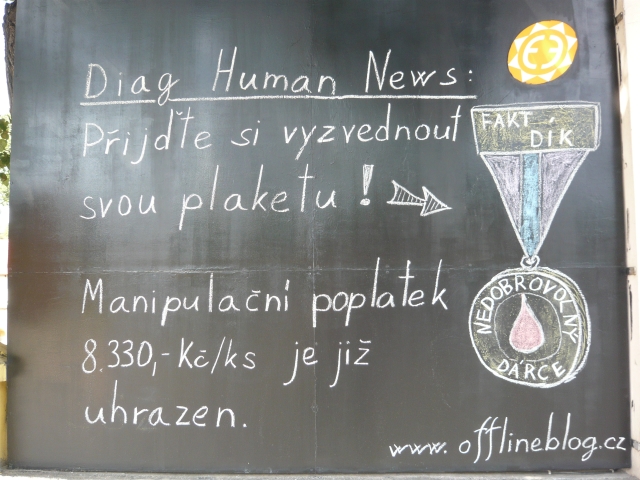 Diag Human News:
Přijďte si vyzvednout
svou plaketu!
Manipulační poplatek
8.330,- Kč/ks je již
uhrazen.
FAKT
DÍK
NEDOBROVOLNÝ
DÁRCE
www.offlineblog.cz